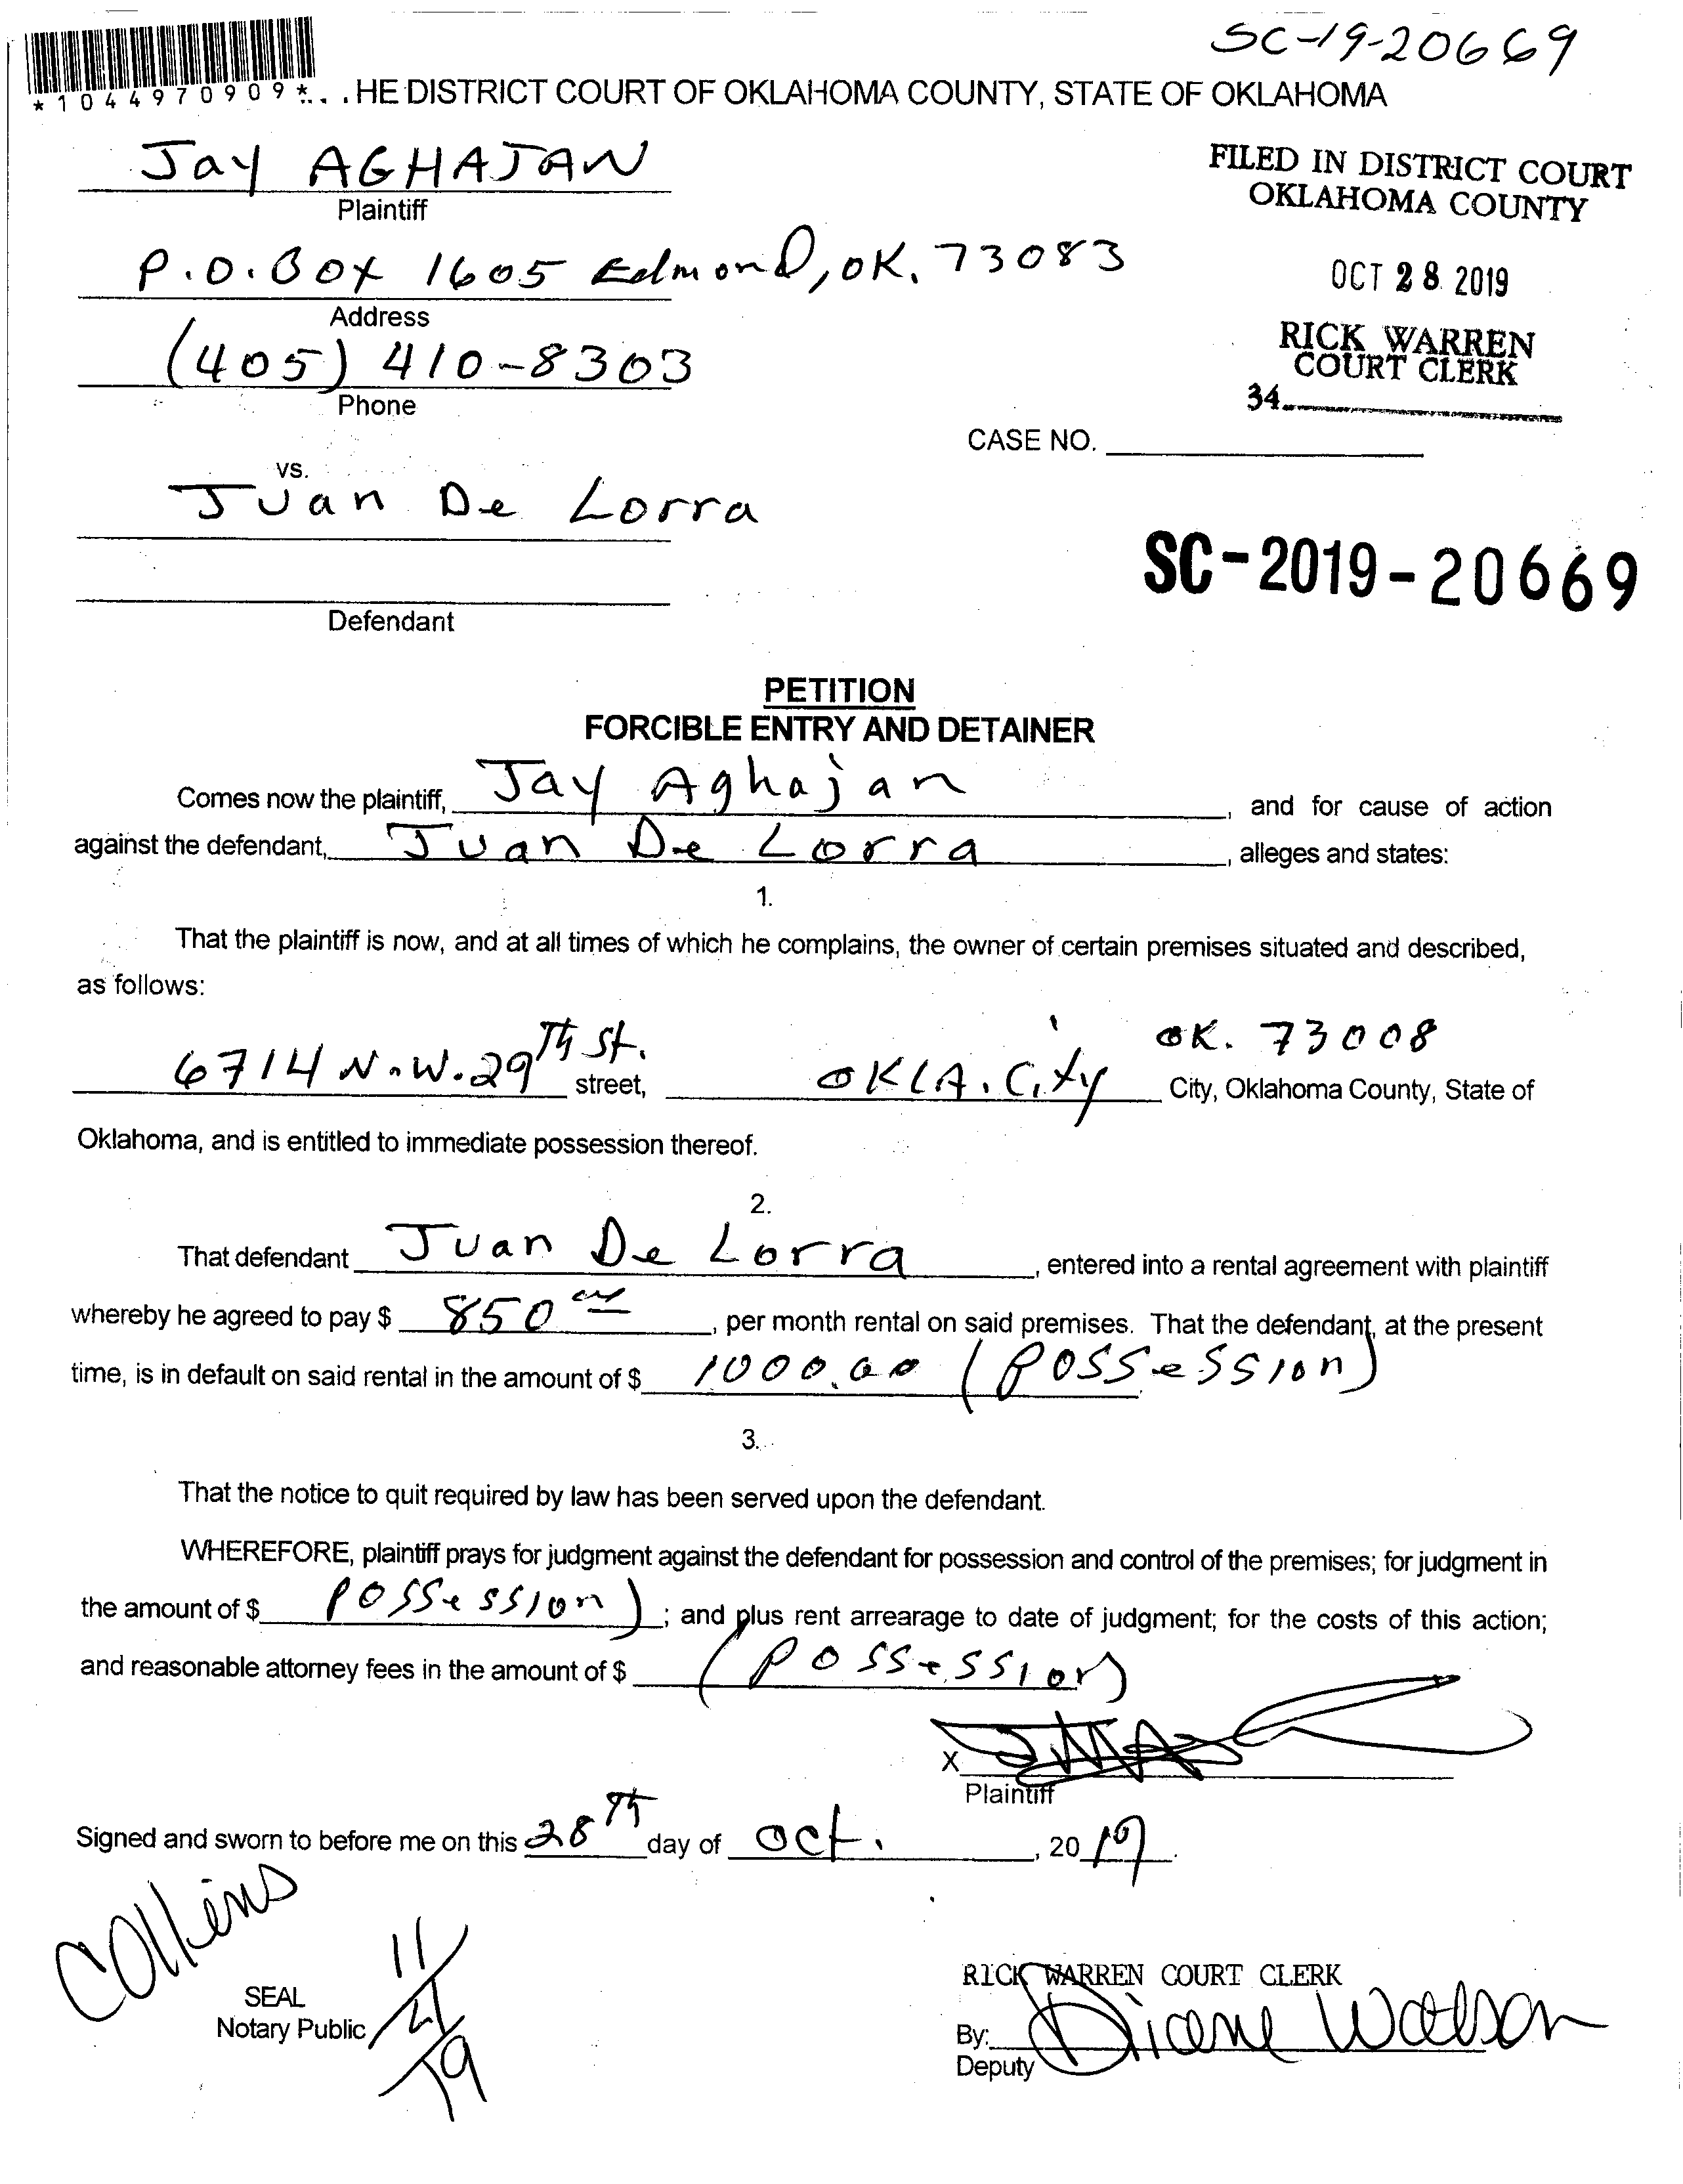 SC-19-20669
*1044970909*. . . HE DISTRICT COURT OF OKLAHOMA COUNTY, STATE OF OKLAHOMA
Jay AGHAJAN
Plaintiff
FILED IN DISTRICT COURT
OKLAHOMA COUNTY
P.O. Box 1605 Edmond, OK. 73083
Address
OCT 28 2019
(405) 410-8303
Phone
RICK WARREN
COURT CLERK
34
CASE NO.
vs.
Juan De Lorra
Defendant
SC-2019-20669
PETITION
FORCIBLE ENTRY AND DETAINER
Comes now the plaintiff, Jay Aghajan, and for cause of action
against the defendant, Juan De Lorra, alleges and states:
1.
That the plaintiff is now, and at all times of which he complains, the owner of certain premises situated and described,
as follows:
6714 N.W. 29th St. street, OKLA. City OK. 73008 City, Oklahoma County, State of
Oklahoma, and is entitled to immediate possession thereof.
2.
That defendant Juan De Lorra, entered into a rental agreement with plaintiff
whereby he agreed to pay $ 850, per month rental on said premises. That the defendant, at the present
time, is in default on said rental in the amount of $ 1000.00 (Possession)
3.
That the notice to quit required by law has been served upon the defendant.
WHEREFORE, plaintiff prays for judgment against the defendant for possession and control of the premises; for judgment in
the amount of $ Possession); and plus rent arrearage to date of judgment; for the costs of this action;
and reasonable attorney fees in the amount of $ (Possession)
X
Plaintiff
Signed and sworn to before me on this 28th day of Oct., 2019.
Collins
SEAL
Notary Public
11/21/19
RICK WARREN COURT CLERK
By: Diane Watson
Deputy